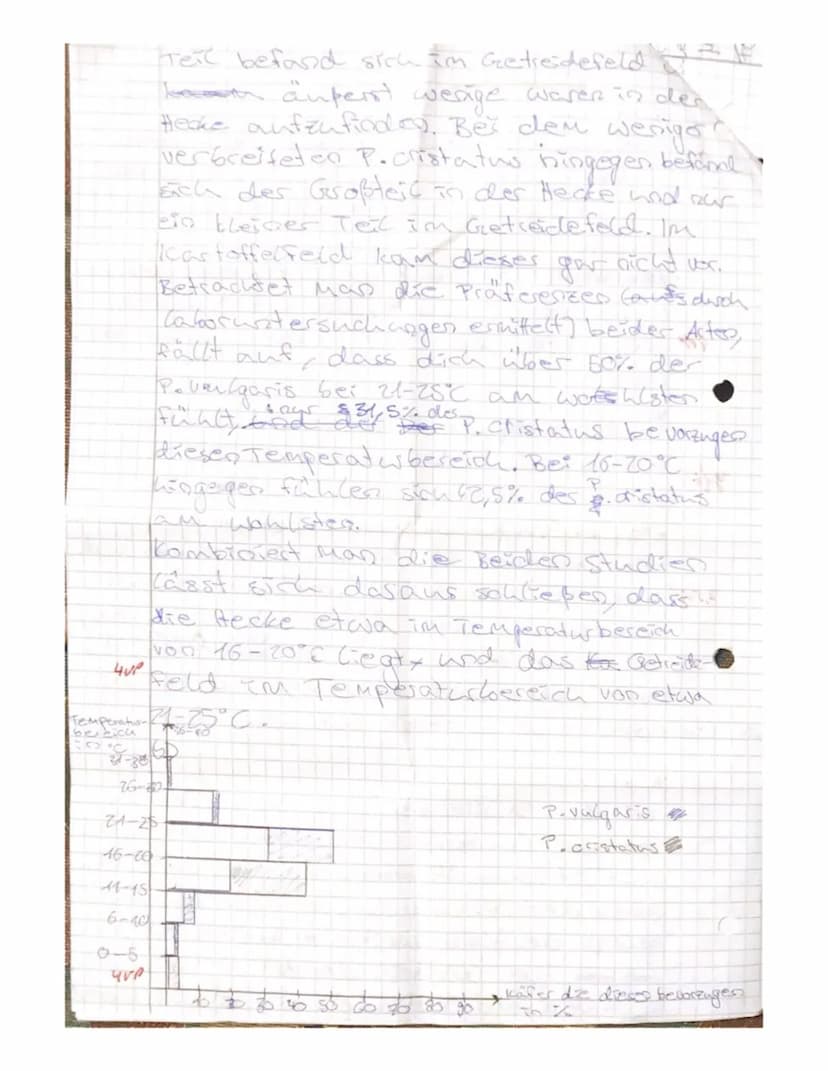 Teil befand sich im Getreidefeld
äuperst wenige waren in der
Hecke aufzufinden. Bei dem weniger
verbreiteten P. cristatus hingegen befand
sich der Großteil in der Hecke und nur
ein kleiner Teil im Getreidefeld. Im
Kartoffelfeld kam dieses gar nicht vor.
Betrachtet man die Präferenzen (durch
Laboruntersuchungen ermittelt) beider Arten,
fällt auf, dass dich über 50% der
P. vulgaris bei 21-25°C am wohlsten
fühlt, nur 31,5% des P. cristatus bevorzugen
diesen Temperaturbereich. Bei 16-20°C
hingegen fühlen sich 42,5% des P. cristatus
am wohlsten.
Kombiniert man die Beiden Studien
lässt sich daraus schließen, dass
die Hecke etwa im Temperaturbereich
von 16-20°C liegt, und das Getreide-
4VP
feld im Temperaturbereich von etwa
21-25°C.
Temperatur-
bereich
in °C
36-40
31-35
26-30
21-25
16-20
11-15
6-10
0-5
P. vulgaris
P. cristatus
4VP
10 20 30 40 50 60 70 80 90
Käfer die dieses bevorzugen
in %